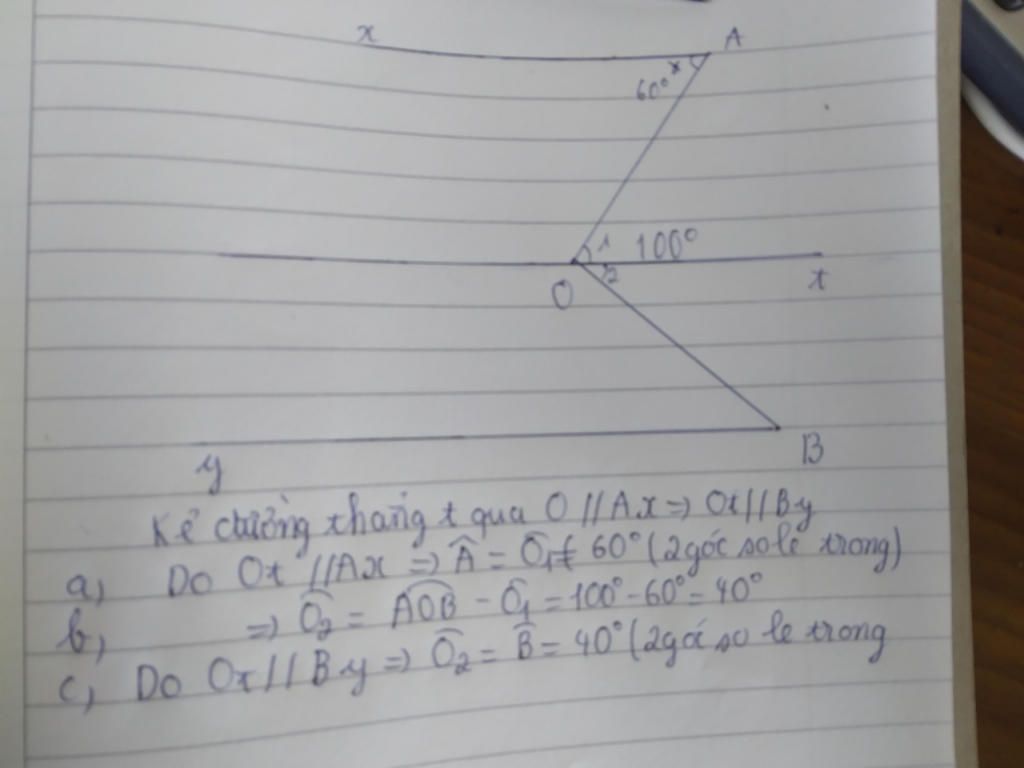 x
A
60°
1
100°
2
O
t
B
y
Kẻ đường thẳng t qua O // Ax => Ot // By
a, Do Ot // Ax => Â = Ô1 = 60° (2 góc so le trong)
b, => Ô2 = AOB - Ô1 = 100° - 60° = 40°
c, Do Ot // By => Ô2 = B̂ = 40° (2 góc so le trong